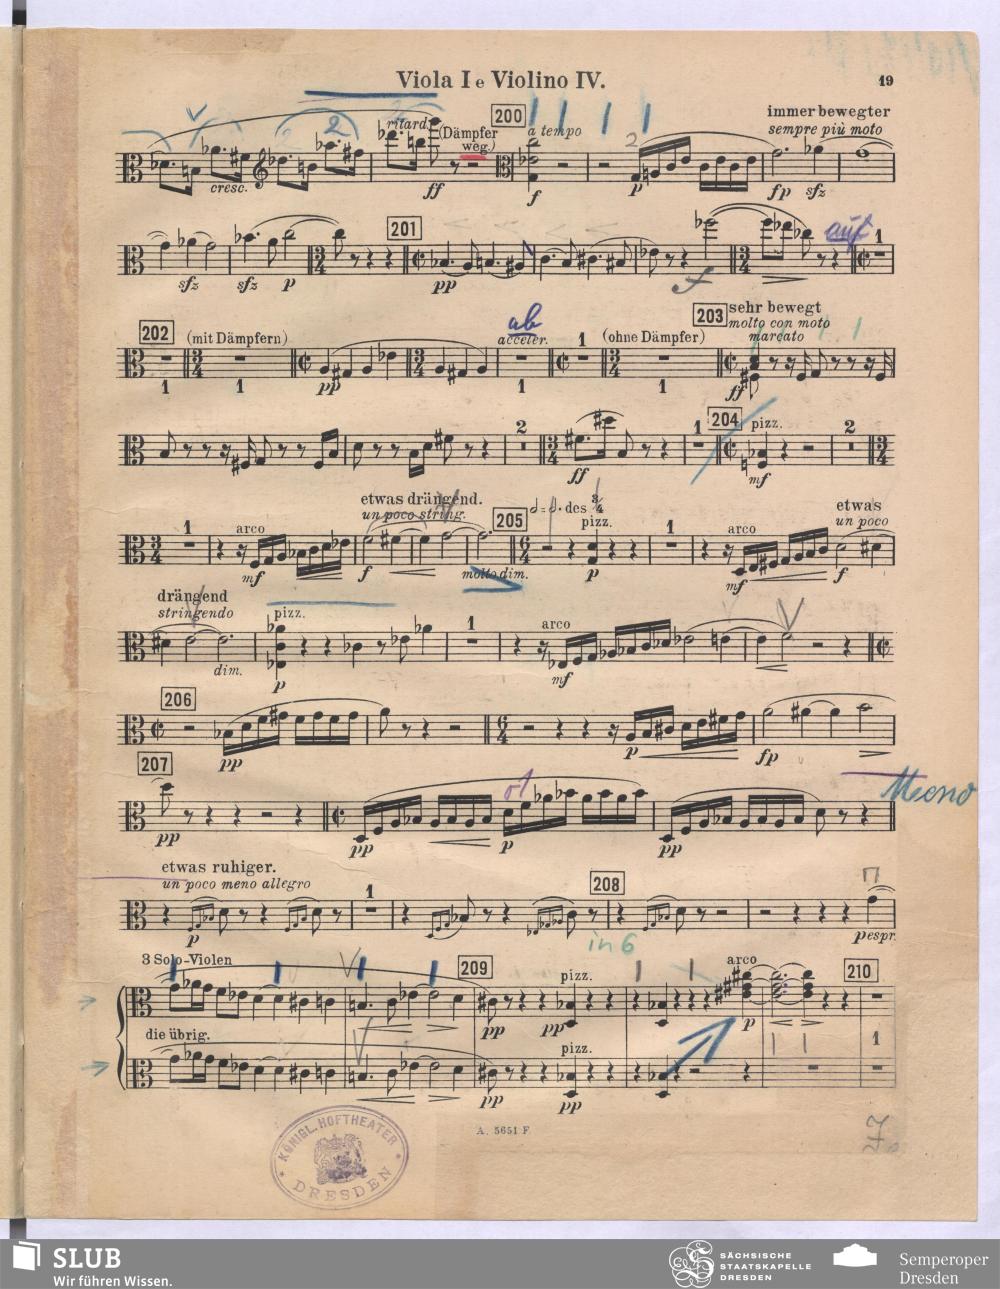 Viola I e Violino IV.
19
200
immer bewegter
ritard.
(Dämpfer
weg.)
a tempo
sempre più moto
cresc.
ff
f
p
fp
sfz
201
auf
1
sfz
sfz
p
pp
f
202
(mit Dämpfern)
ab
acceler.
1
(ohne Dämpfer)
203
sehr bewegt
molto con moto
marcato
1
1
pp
1
1
ff
2
1
204
pizz.
2
ff
mf
1
arco
etwas drängend.
un poco string.
205
des 3/4
pizz.
1
arco
etwas
un poco
mf
f
molto dim.
p
mf
f
drängend
stringendo
pizz.
1
arco
dim.
p
mf
206
pp
p
fp
207
Meno
pp
pp
p
pp
etwas ruhiger.
un poco meno allegro
1
208
p
in 6
p espr.
3 Solo-Violen
209
pizz.
arco
210
pp
pp
p
die übrig.
pizz.
1
pp
pp
A. 5651 F.
KÖNIGL. HOFTHEATER
DRESDEN
SLUB
Wir führen Wissen.
SÄCHSISCHE
STAATSKAPELLE
DRESDEN
Semperoper
Dresden